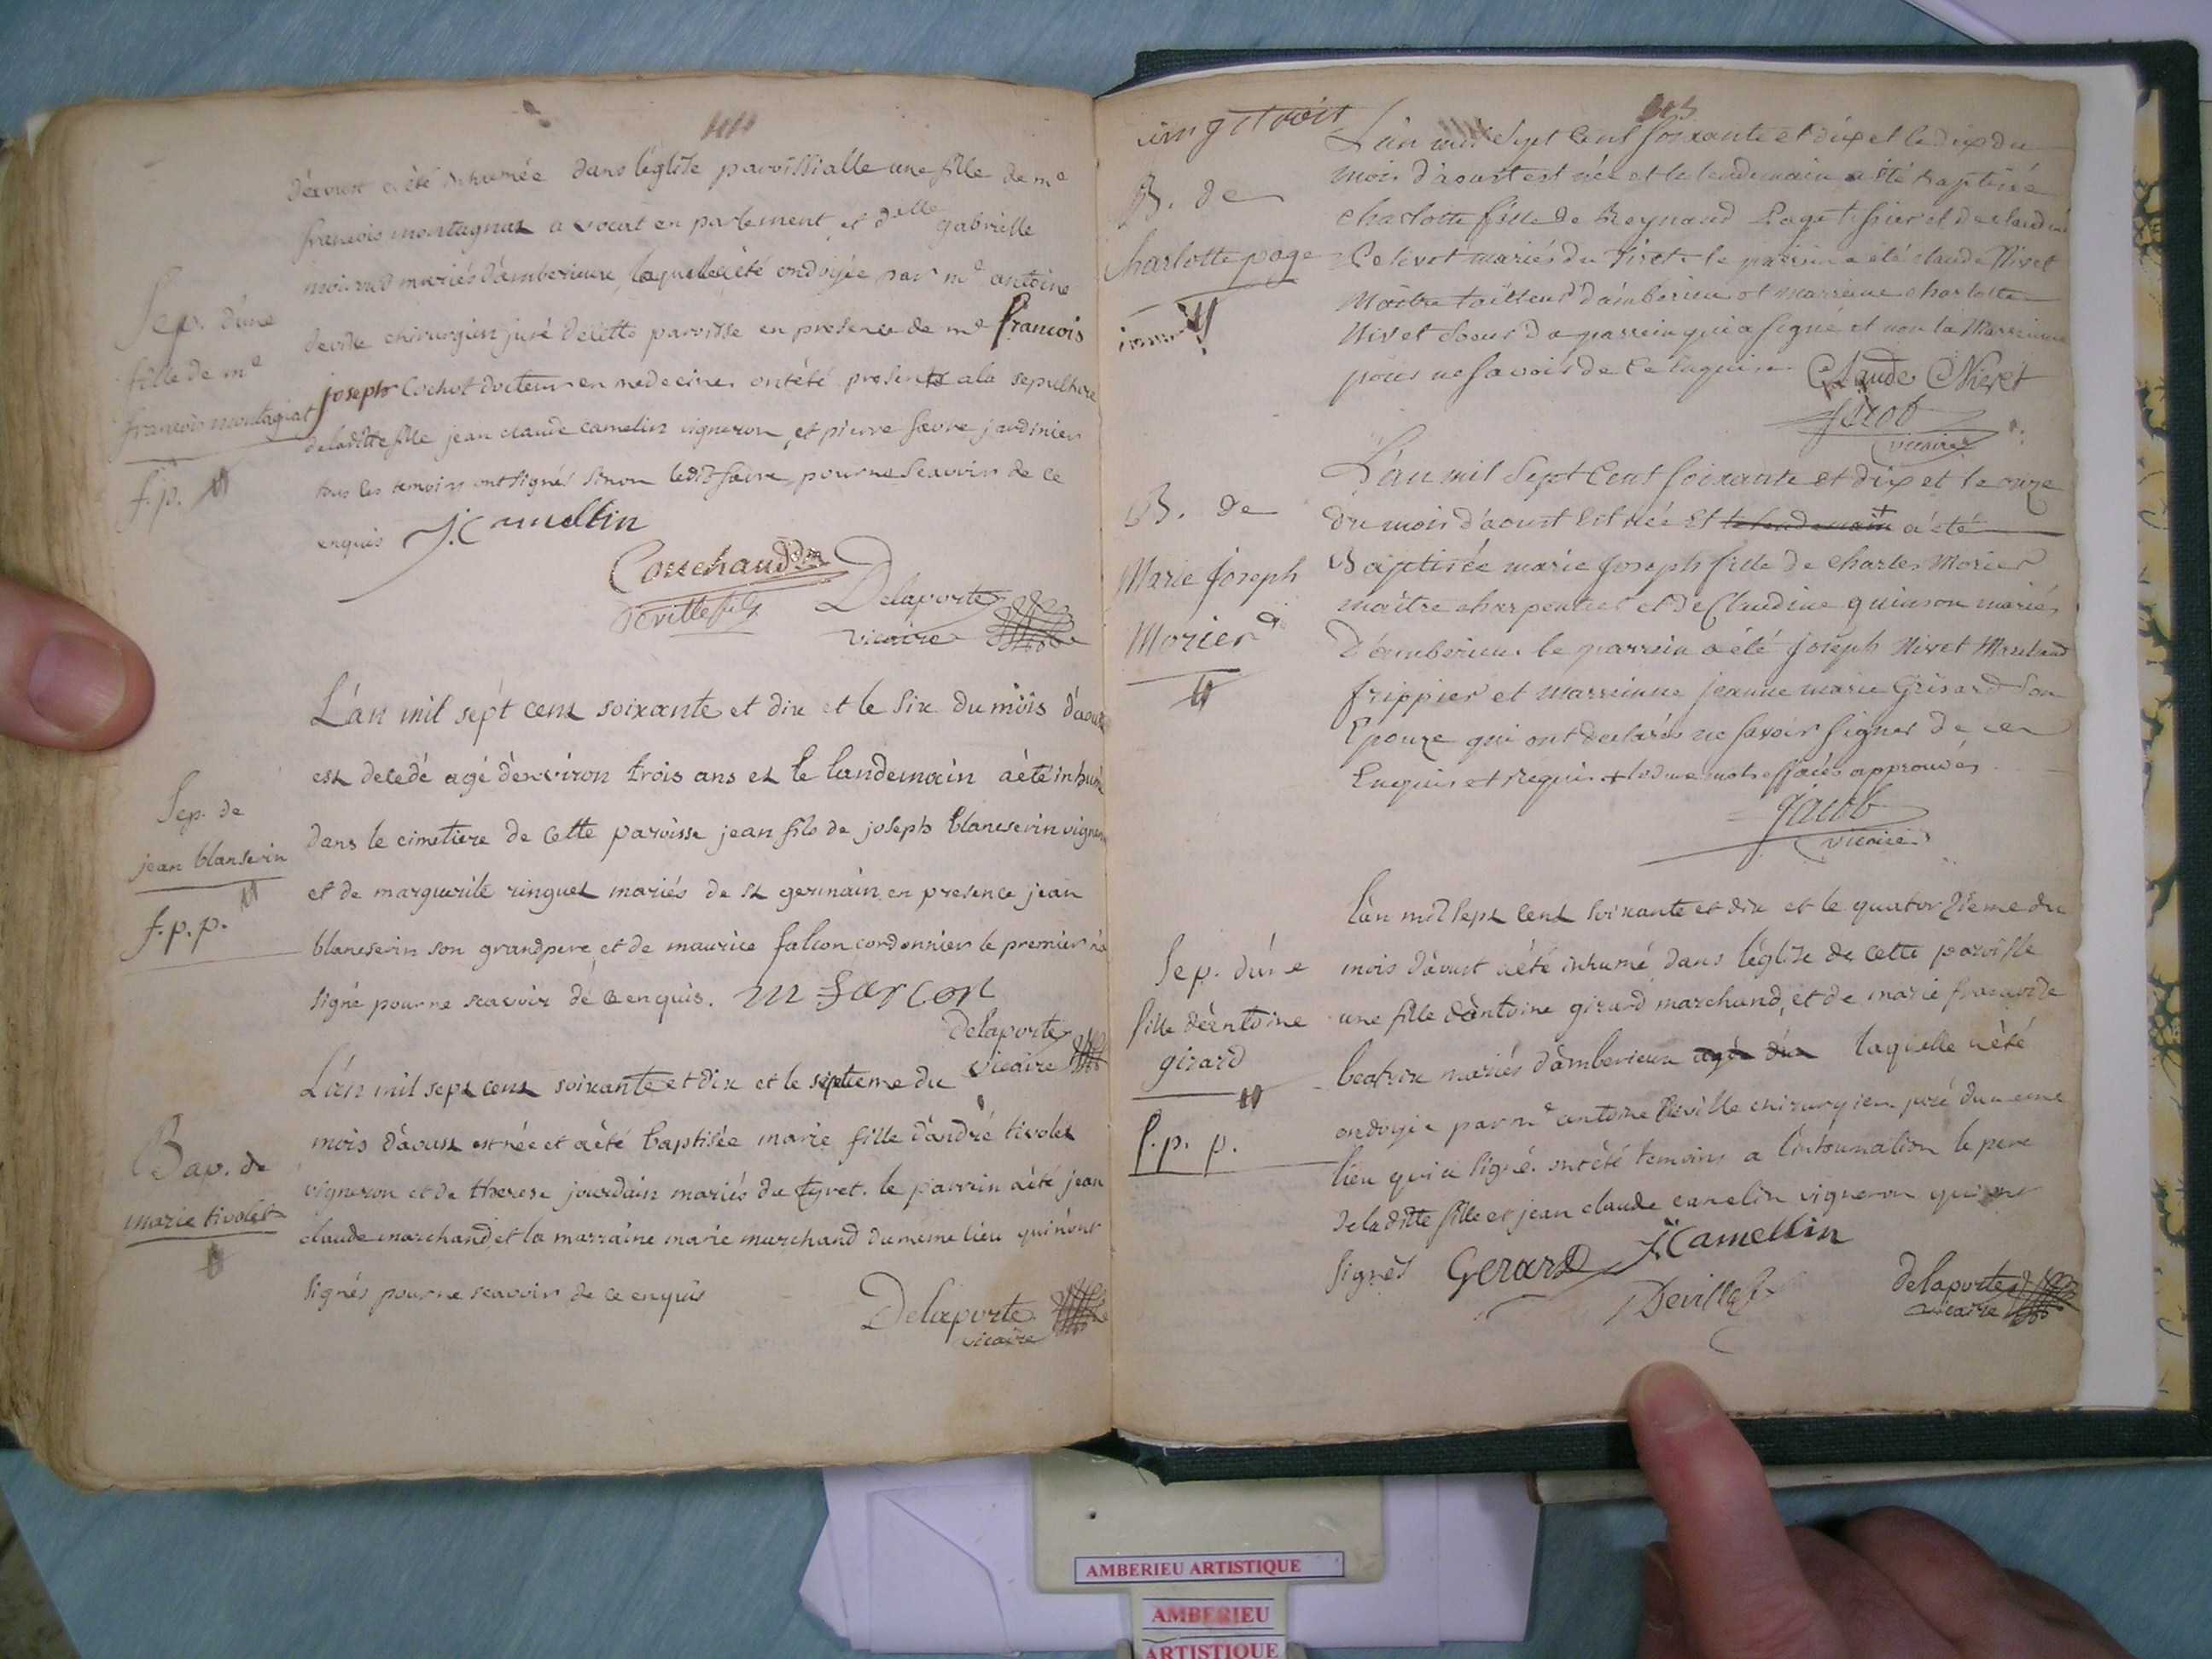 d'aoust a été inhumée dans l'église paroissialle une fille de me
francois montagnat avocat en parlement, et delle gabrielle
mariés d'amberieux, laquelle a été ondoyée par me antoine
deville chirurgien juré de cette paroisse en presence de me francois
joseph Cochot docteur en medecine. ont été presents a la sepulture
de la ditte fille jean claude camelin vigneron, et pierre faivre jardinier
tous les temoins ont signés sinon ledit faivre, pour ne scavoir de ce
enquis J. Camellin
Couchaud dm
Deville
Delaporte
vicaire
Sep. d'une
fille de me
francois montagnat
f. p.
L'an mil sept cent soixante et dix et le six du mois d'aoust
est decedé agé d'environ trois ans et le landemain a été inhumé
dans le cimetiere de cette paroisse jean fils de joseph blancserin vigneron
et de marguerite ringuet mariés de st germain, en presence jean
blancserin son grandpere, et de maurice falcon cordonnier le premier n'a
signé pour ne scavoir de ce enquis. m farcon
Delaporte
vicaire
Sep. de
jean blanserin
f. p. p.
L'an mil sept cent soixante et dix et le septieme du
mois d'aoust est née et a été baptisée marie fille d'andré tivolet
vigneron et de therese jourdain mariés du tyret. le parrin a été jean
claude marchand, et la marraine marie marchand du meme lieu qui n'ont
signés pour ne scavoir de ce enquis
Delaporte
vicaire
Bap. de
marie tivolet
L'an mil Sept Cent Soixante et dix et le dix du
mois d'aoust est née et le lendemain a été baptisée
charlotte fille de Reynaud Page tissier et de claudine
mariés du Tiret. le parrin a été claude Nivet
Maitre tailleur d'amberieu et marreine charlotte
Nivet soeur du parrein qui a signé et non la Marreinne
pour ne savoir de ce enquise. Claude Nivet
Jacob
vicaire
B. de
Charlotte page
L'an mil Sept Cent Soixante et dix et le onze
du mois d'aoust est née et le lendemain + a été
Baptisée marie Joseph fille de Charles Morier
maître charpentier et de Claudine quinson mariés
D'amberieu. le parrein a été Joseph Nivet Marchand
frippier et Marreinne jeanne marie Grisard Son
Epouze qui ont declarés ne savoir signer de ce
Enquis et Requis + les deux mots effacés approuvés
Jacob
vicaire
B. de
Marie Joseph
Morier
L'an mil sept cent soixante et dix et le quatorzieme du
mois d'aoust a été inhumé dans l'église de cette paroisse
une fille d'antoine girard marchand, et de marie francoise
beatrix mariés d'amberieux agée d'un laquelle a été
ondoyée par me antoine Deville chirurgien juré du meme
lieu qui a signé. ont été temoins a l'inhumation le pere
de la ditte fille et jean claude camelin vigneron qui ont
signés Gerard J. Camellin
Deville
delaporte
vicaire
Sep. d'une
fille d'antoine
girard
f. p. p.
AMBERIEU ARTISTIQUE
AMBERIEU
ARTISTIQUE